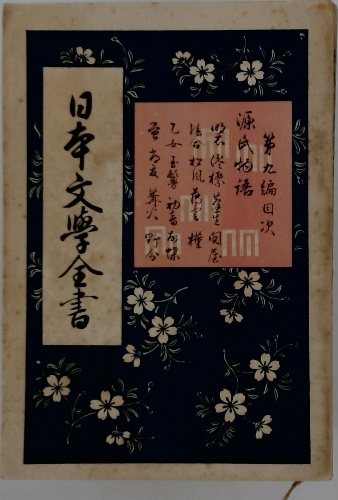 第九編目次
源氏物語
明石 澪標 蓬生 関屋
絵合 松風 薄雲 槿
乙女 玉鬘 初音 胡蝶
蛍 常夏 篝火 野分
日本文學全書